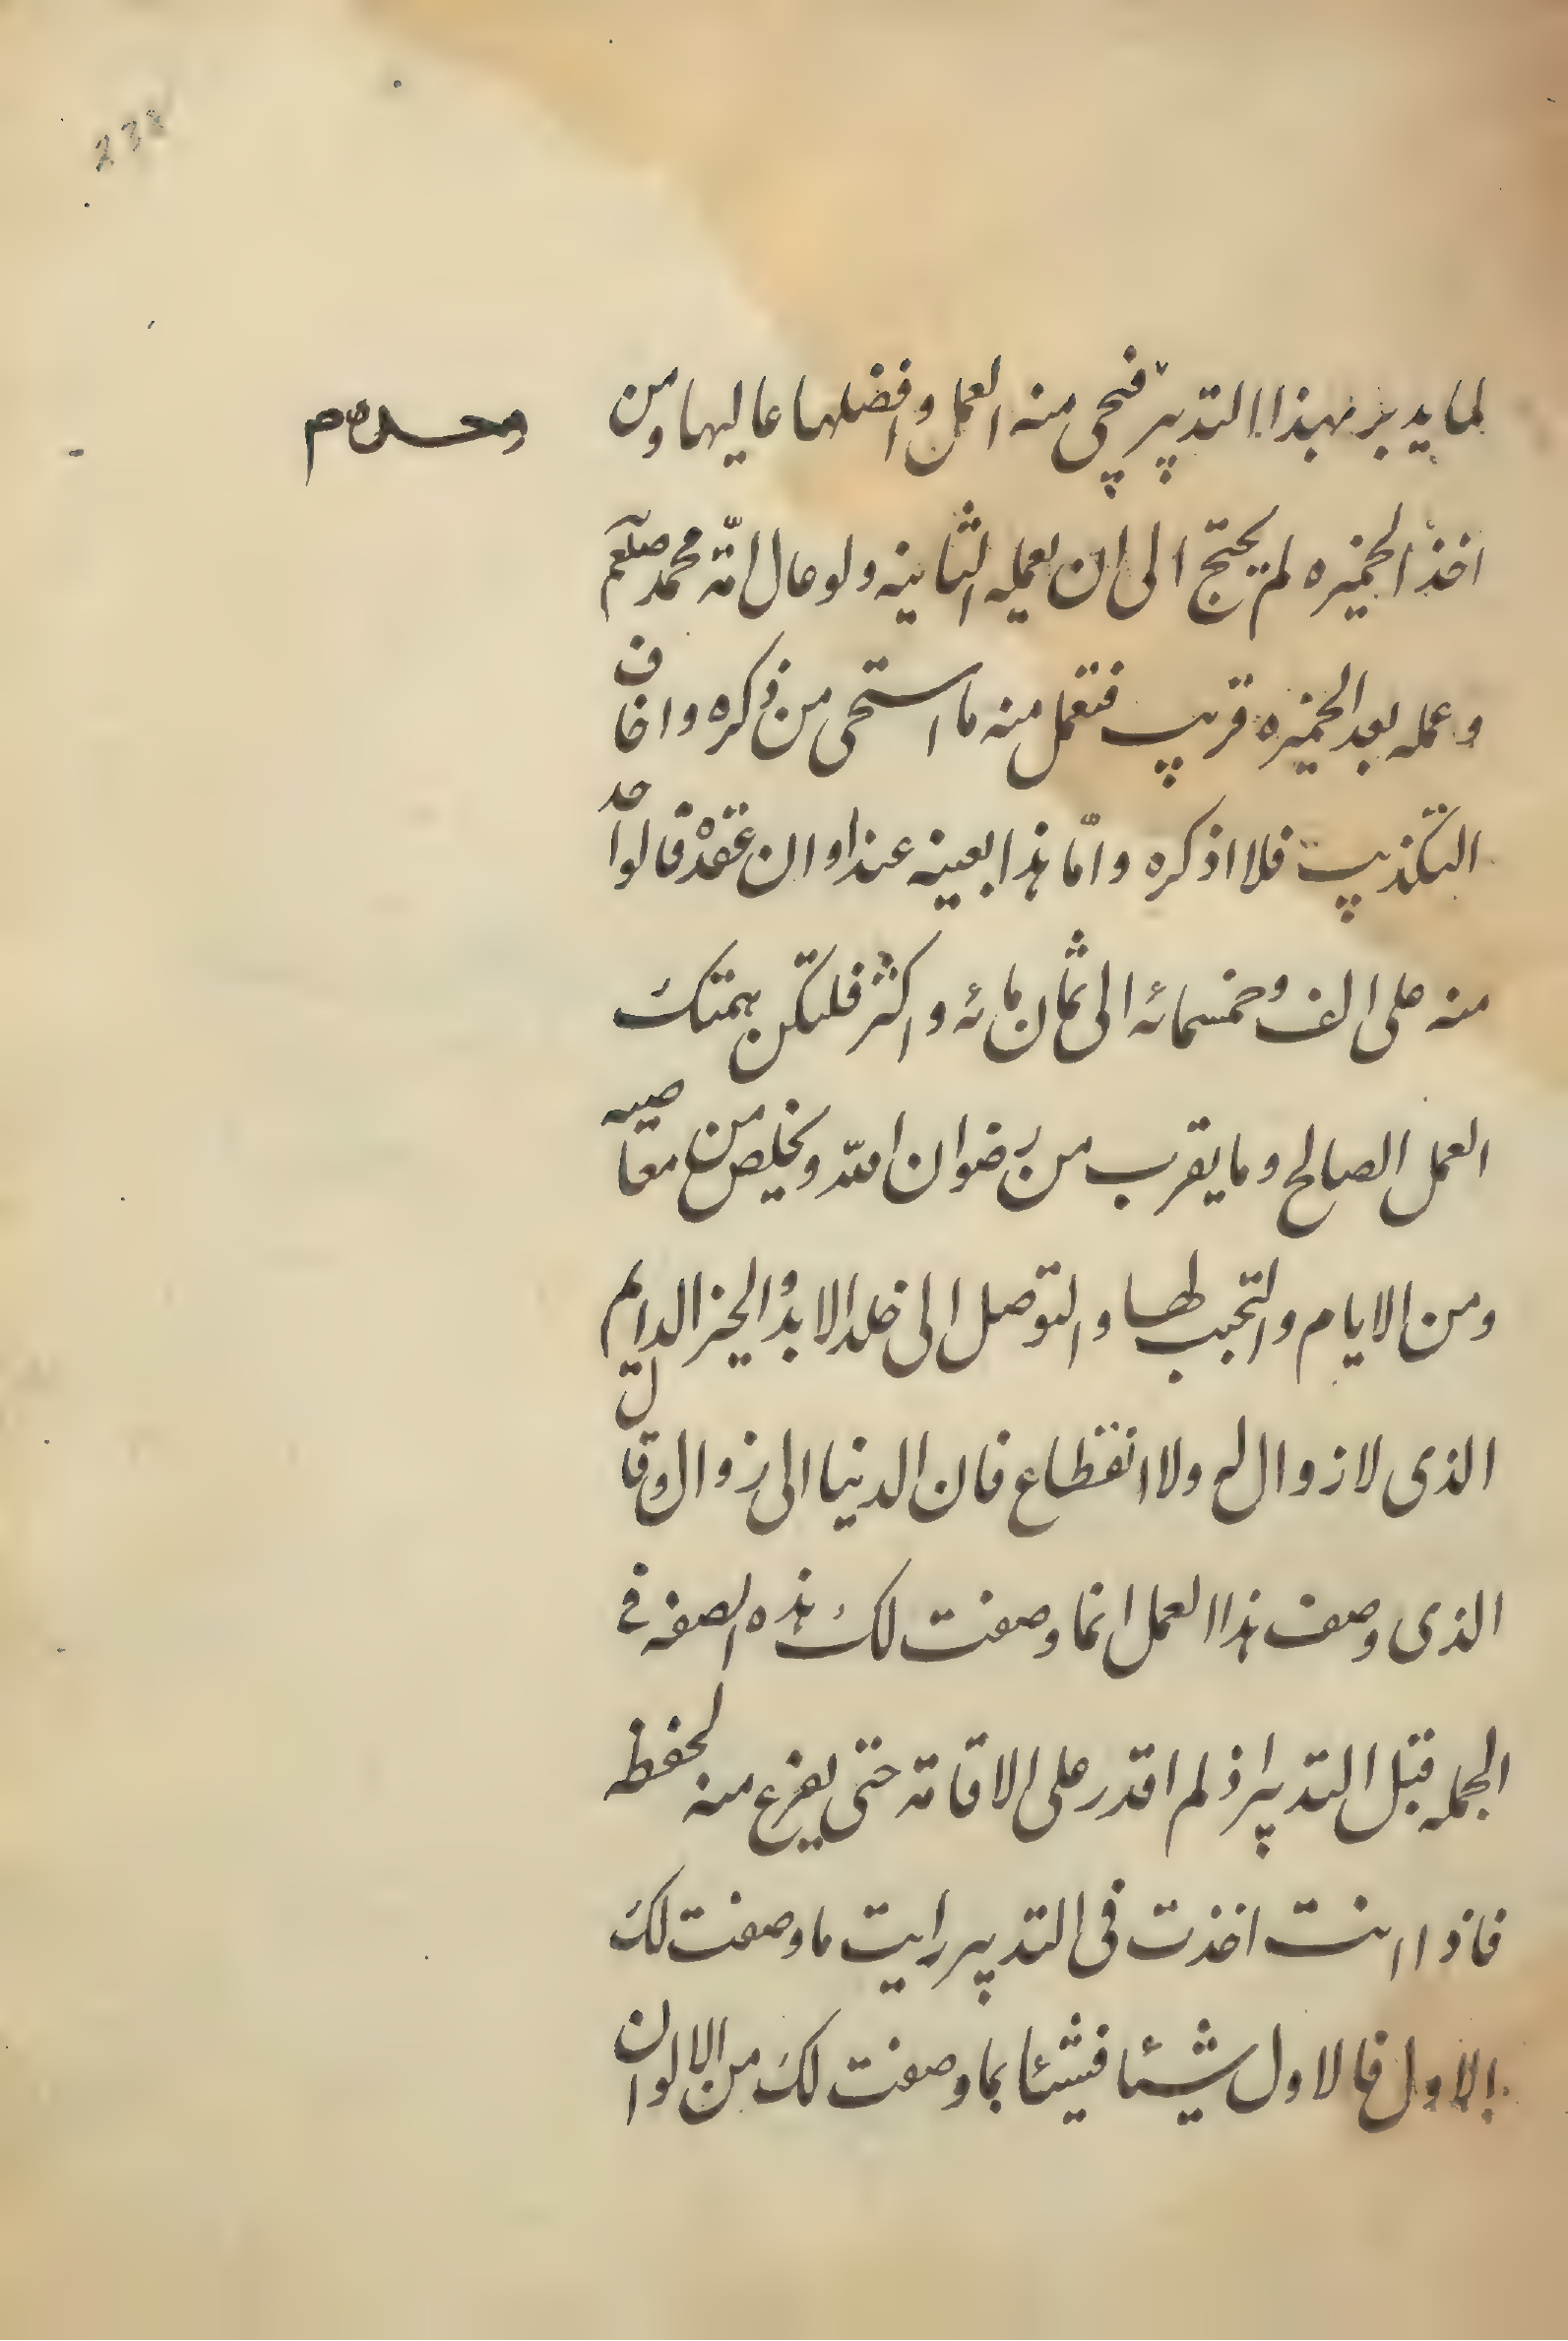 لما يدبر بهذا التدبير فيجى منه العمل وافضلها عاليها ومن
اخذ الخميره لم يحتج الى ان يعمله الثانيه ولو عال امّة محمد صلعم
وعمله بعد الخميره قريب فتعمل منه ما استحى من ذكره واخاف
التكذيب فلا اذكره وامّا هذا بعينه عند اوان عقده قالوا حد
منه على الف وخمسمائه الى ثمان مائه واكثر فلتكن همتك
العمل الصالح وما يقرب من رضوان الله ويخلص من معاصيه
ومن الايام والتجبب لها والتوصل الى خلد الابد والخير الدايم
الذى لا زوال له ولا انقطاع فان الدنيا الى زوال وقال
الذى وصف هذا العمل انما وصفت لك هذه الصفه فى
الجمله قبل التدبير اذ لم اقدر على الاقامة حتى يفرغ منه لحفظه
فاذا انت اخذت فى التدبير رايت ما وصفت لك
الاول فالاول شيئا فشيئا بما وصفت لك من الالوان